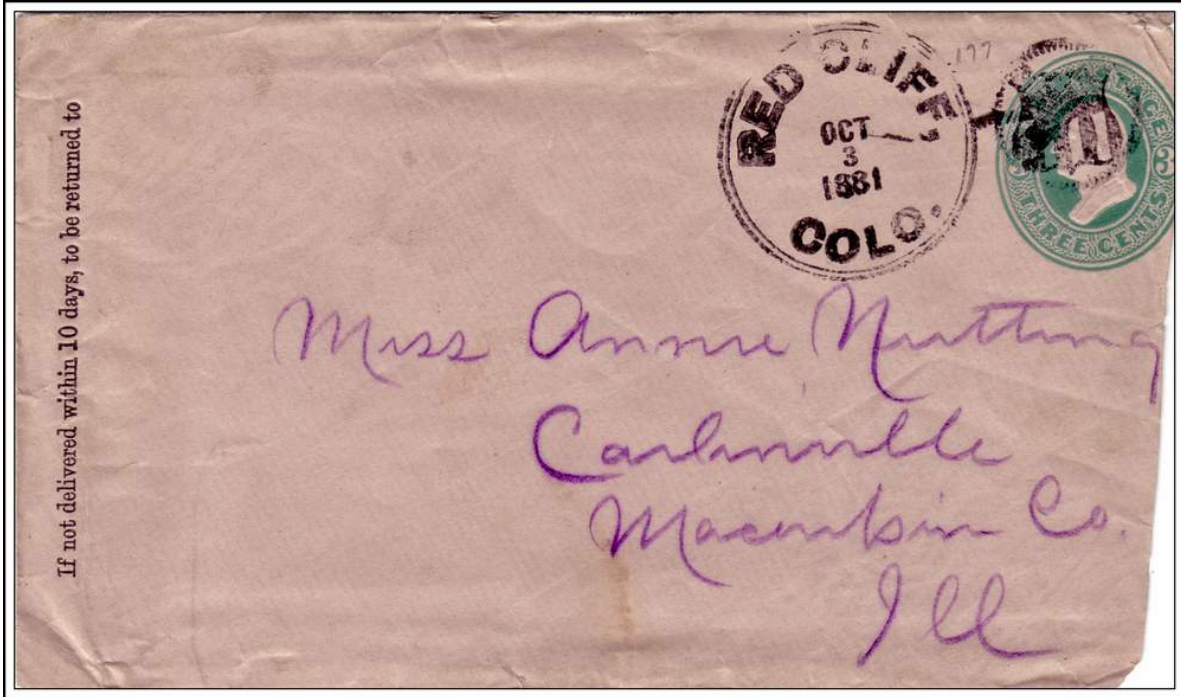 If not delivered within 10 days, to be returned to
RED CLIFF,
OCT
3
1881
COLO.
177
POSTAGE
3 3
THREE CENTS
Miss Annie Nutting
Carlinville
Macoupin Co.
Ill